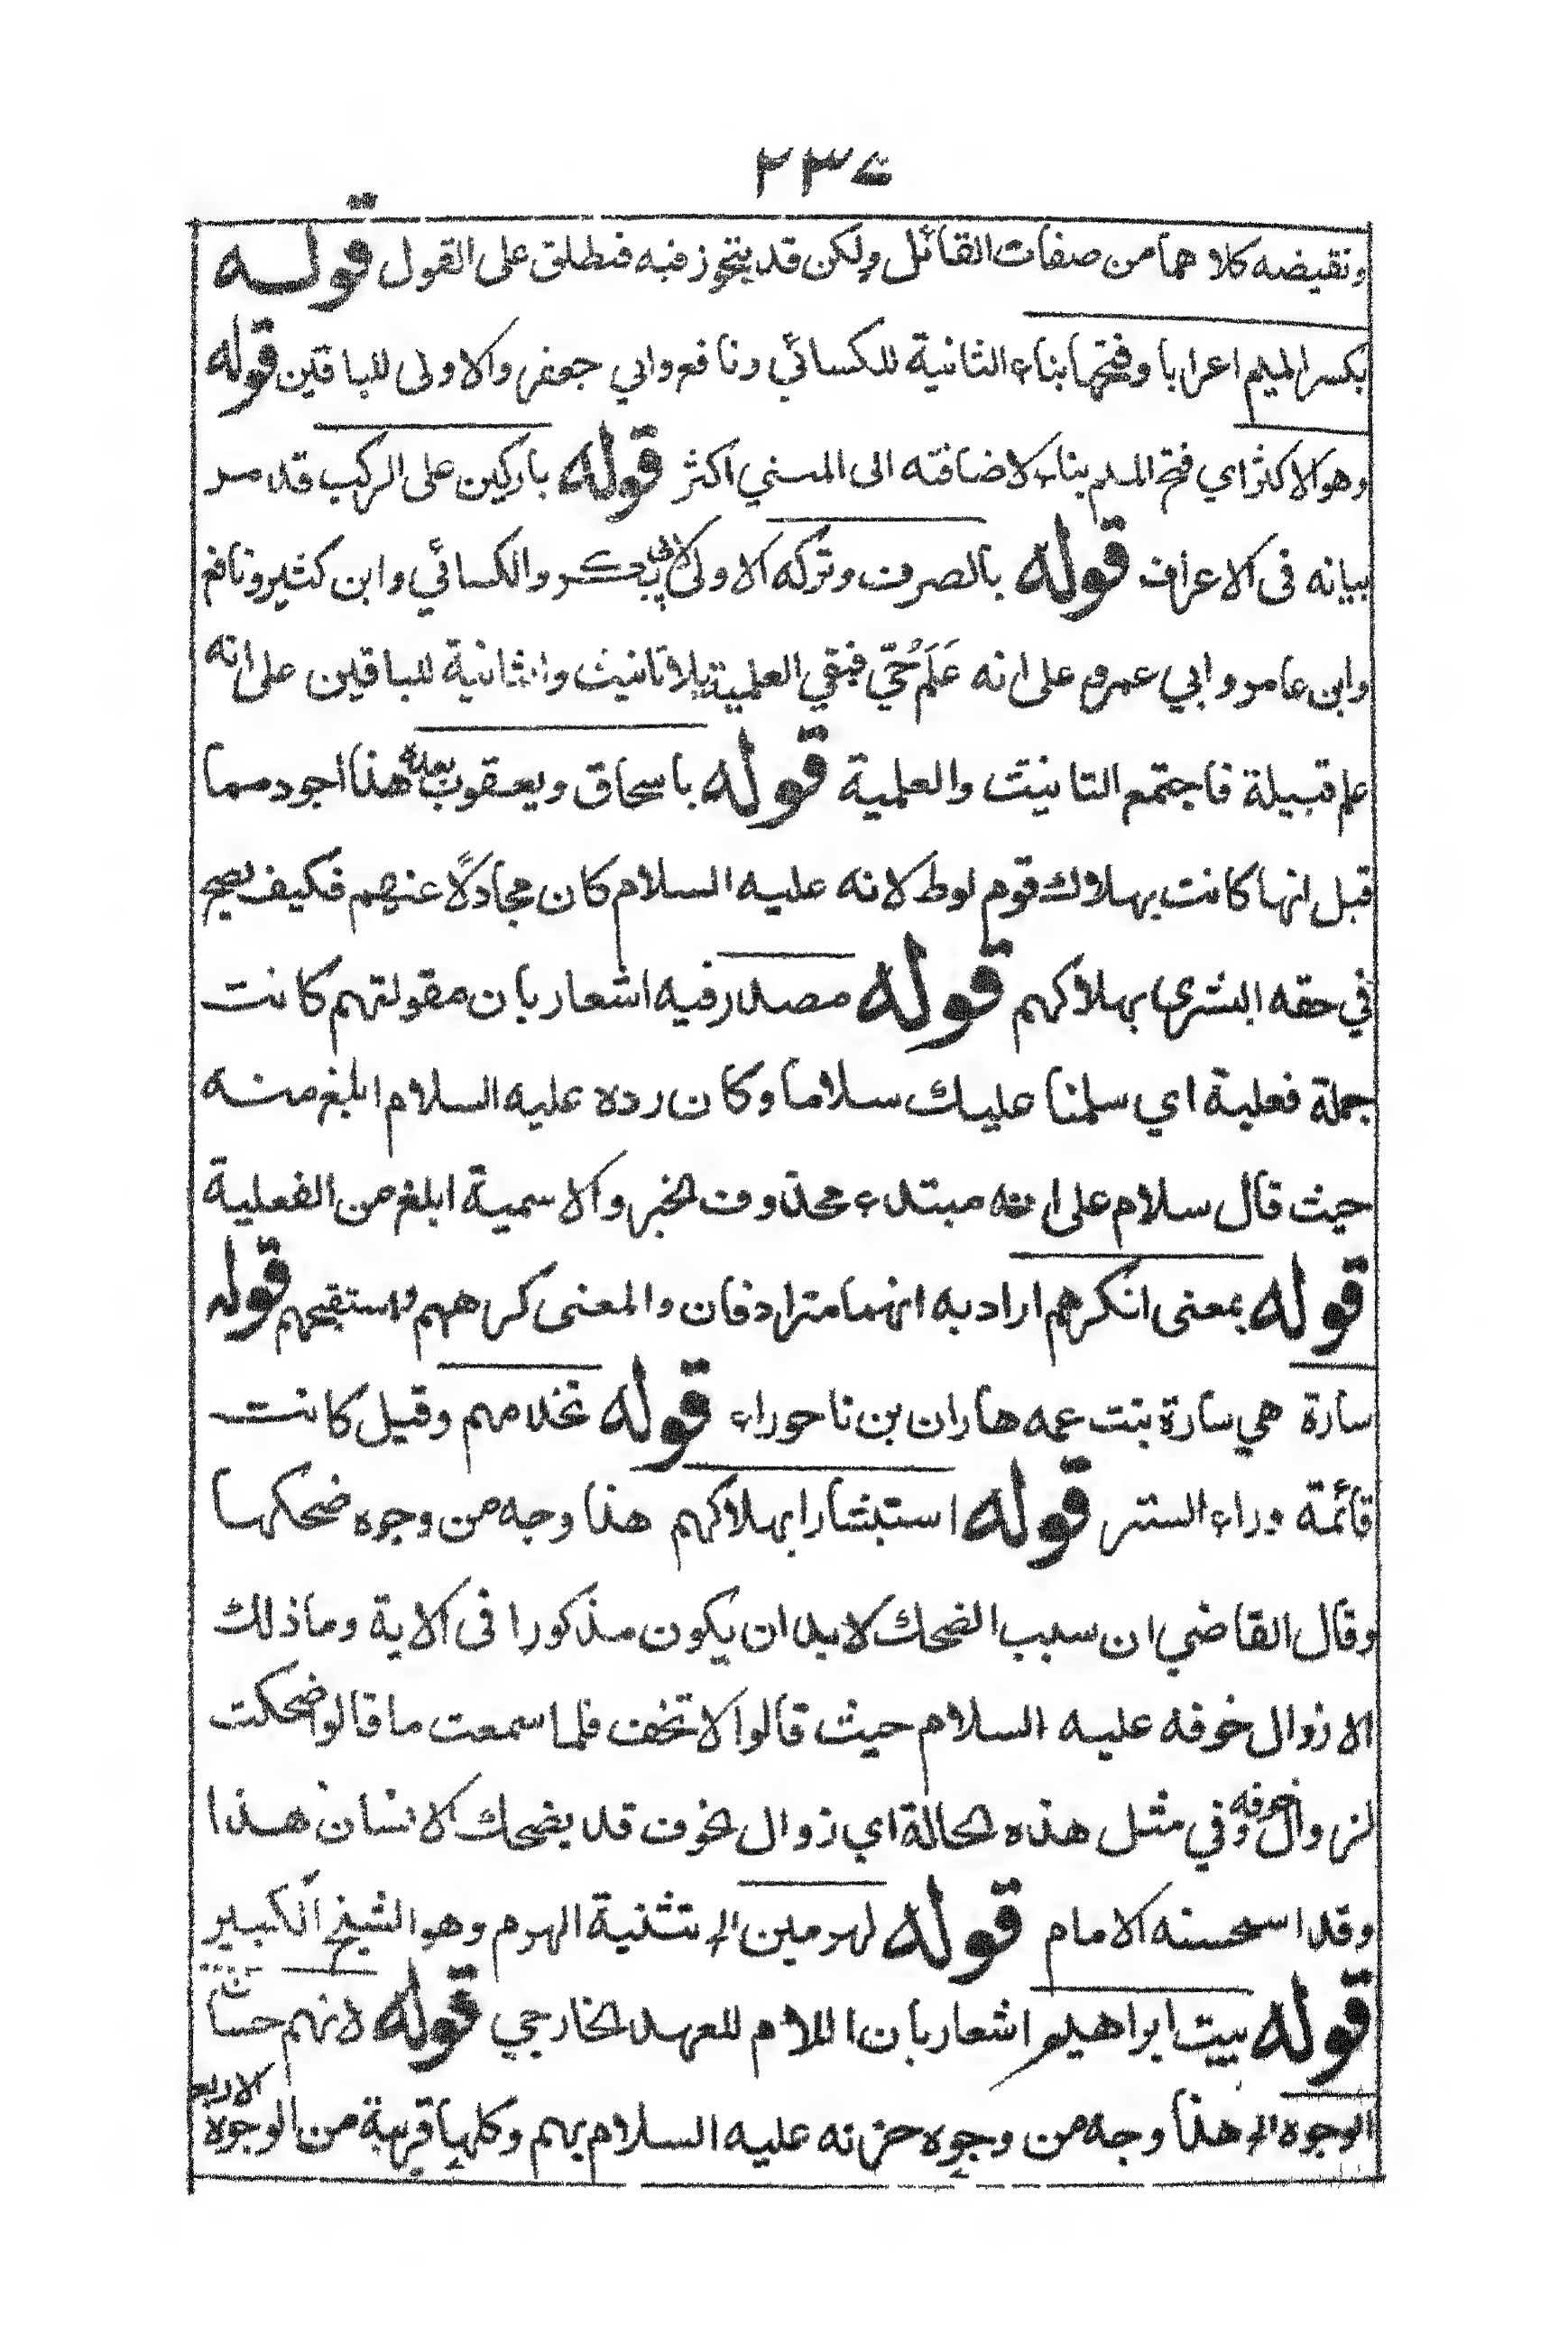 ٢٣٤
ونقيضه كلاهما من صفات القائل ولكن قد يتجوز فيه فتطلق على القول قولـه
بكسر الميم اعرابا وفتحها بناء الثانية للكسائي ونافع وابي جعفر والاولى للباقين قوله
وهو الاكثر اي فتح الميم بناء لاضافته الى المبني اكثر قوله باركين على الركب قد مر
بيانه فى الاعراف قوله بالصرف وتركه الاولى لابي بكر والكسائي وابن كثير ونافع
وابن عامر وابي عمرو على انه عَلَم حُيّ فبقي العلمية بلا تانيث والثانية للباقين على انه
علم قبيلة فاجتمع التانيث والعلمية قوله باسحاق ويعقوب بعده هذا اجود مما
قيل انها كانت بهلاك قوم لوط لانه عليه السلام كان مجادلًا عنهم فكيف يصح
في حقه البشرى بهلاكهم قوله مصدر فيه اشعار بان مقولتهم كانت
جملة فعلية اي سلمنا عليك سلاما وكان رده عليه السلام ابلغ منه
حيث قال سلام على انه مبتدء محذوف الخبر والاسمية ابلغ من الفعلية
قوله بمعنى انكرهم اراد به انهما مترادفان والمعنى كرههم واستقبحهم قوله
سارة هي سارة بنت عمه هاران بن ناحوراء قوله تخدمهم وقيل كانت
قائمة وراء الستر قوله استبشارا بهلاكهم هذا وجه من وجوه ضحكها
وقال القاضي ان سبب الضحك لابد ان يكون مذكورا فى الاية وما ذلك
الا زوال خوفه عليه السلام حيث قالوا لا تخف فلما سمعت ما قالوا ضحكت
لزوال خوفه وفي مثل هذه الحالة اي زوال الخوف قد يضحك الانسان هذا
وقد استحسنه الامام قوله لهرمين الخ تثنية الهرم وهو الشيخ الكبير
قوله بيت ابراهيم اشعار بان اللام للعهد الخارجي قوله لانهم حسان
الوجوه الخ هذا وجه من وجوه حزنه عليه السلام بهم وكلها قريبة من الوجوه الاربعة